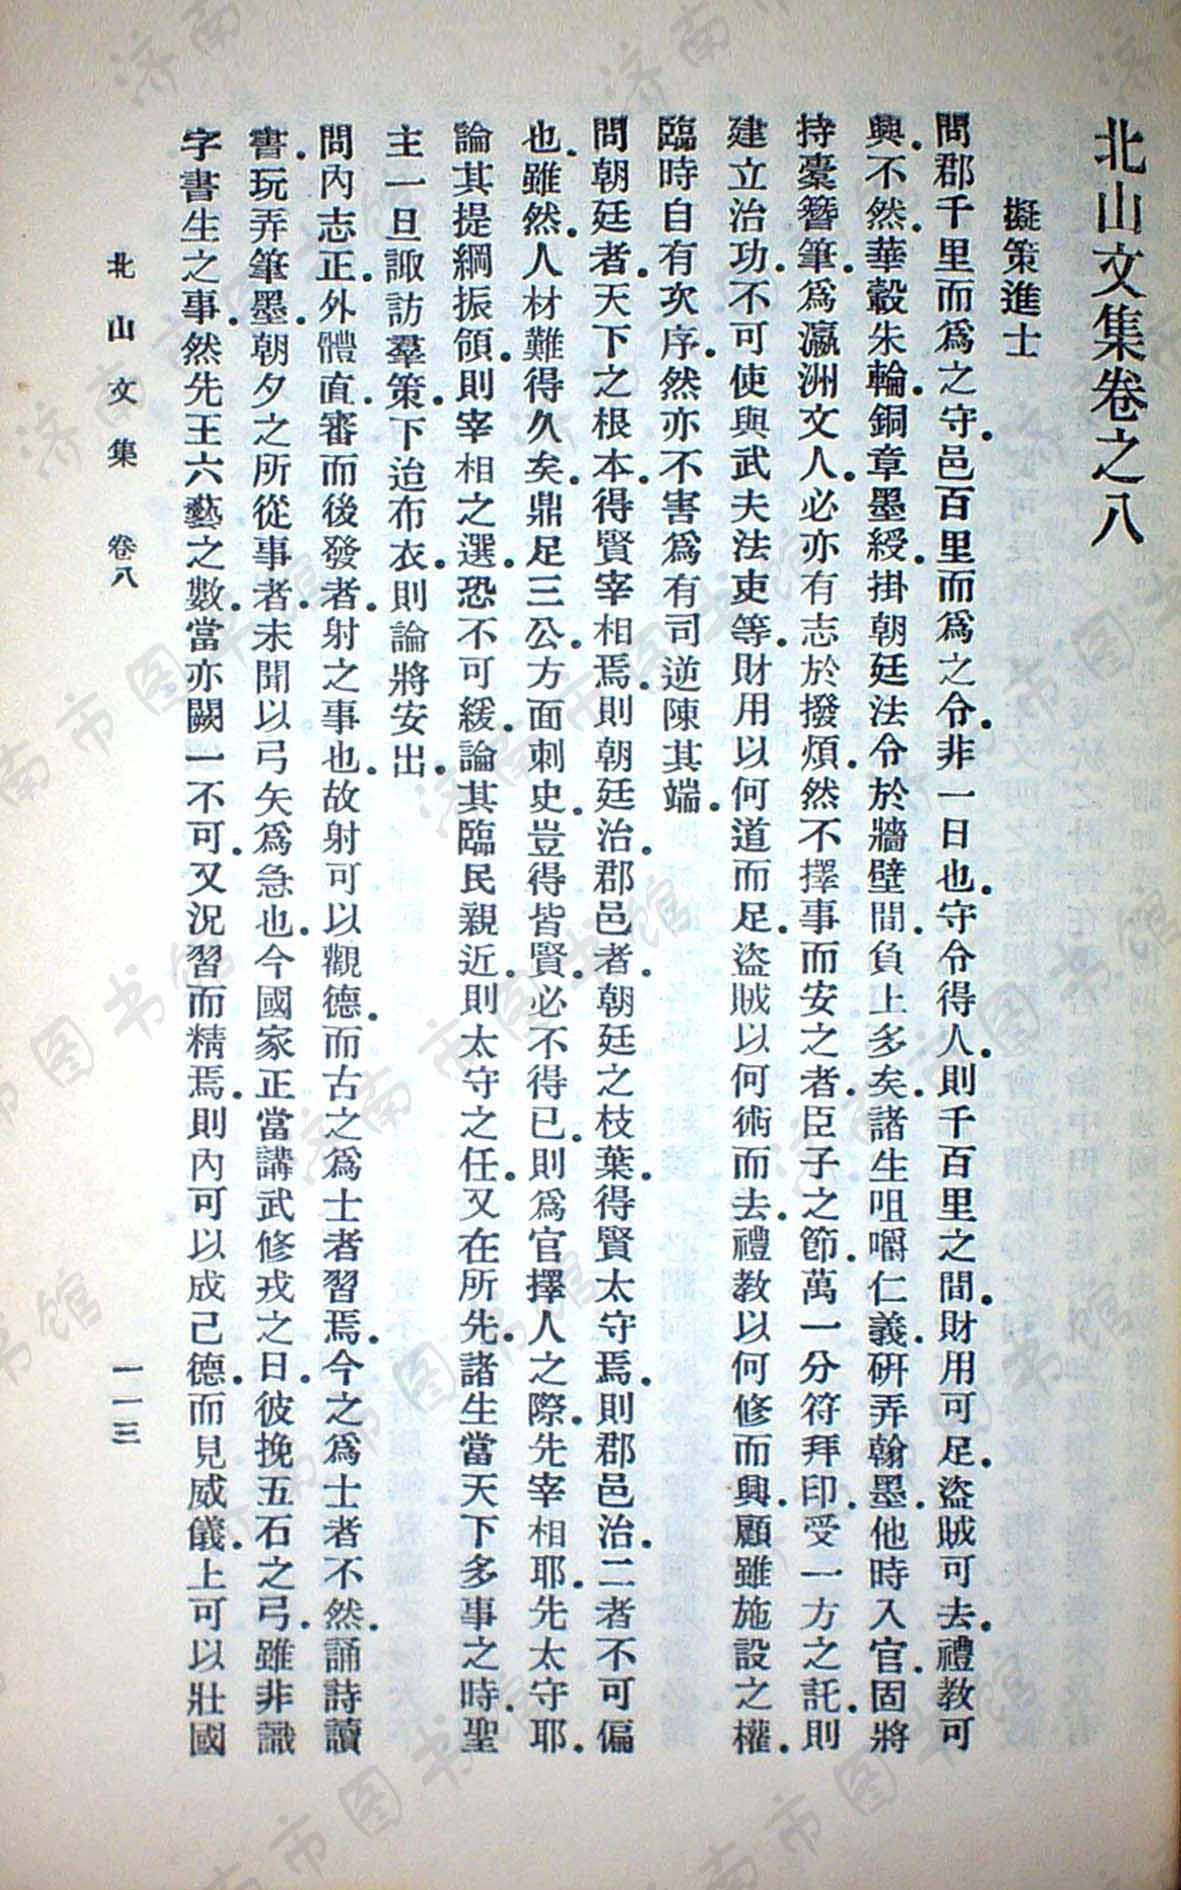 北山文集卷之八
擬策進士
問郡千里而爲之守。邑百里而爲之令。非一日也。守令得人。則千百里之間。財用可足。盜賊可去。禮教可
興。不然。華轂朱輪。銅章墨綬。掛朝廷法令於牆壁間。負上多矣。諸生咀嚼仁義。硏弄翰墨。他時入官。固將
持橐簪筆。爲瀛洲文人。必亦有志於撥煩。然不擇事而安之者。臣子之節。萬一分符拜印。受一方之託。則
建立治功。不可使與武夫法吏等。財用以何道而足。盜賊以何術而去。禮教以何修而興。顧雖施設之權。
臨時自有次序。然亦不害爲有司逆陳其端。
問朝廷者。天下之根本。得賢宰相焉。則朝廷治。郡邑者。朝廷之枝葉。得賢太守焉。則郡邑治。二者不可偏
也。雖然。人材難得久矣。鼎足三公。方面刺史。豈得皆賢。必不得已。則爲官擇人之際。先宰相耶。先太守耶。
論其提綱振領。則宰相之選。恐不可緩。論其臨民親近。則太守之任。又在所先。諸生當天下多事之時。聖
主一旦諏訪羣策。下迨布衣。則論將安出。
問內志正。外體直。審而後發者。射之事也。故射可以觀德。而古之爲士者習焉。今之爲士者不然。誦詩讀
書。玩弄筆墨。朝夕之所從事者。未聞以弓矢爲急也。今國家正當講武修戎之日。彼挽五石之弓。雖非識
字書生之事。然先王六藝之數。當亦闕一不可。又況習而精焉。則內可以成己德。而見威儀。上可以壯國
北山文集 卷八 一一三
济南市图书馆